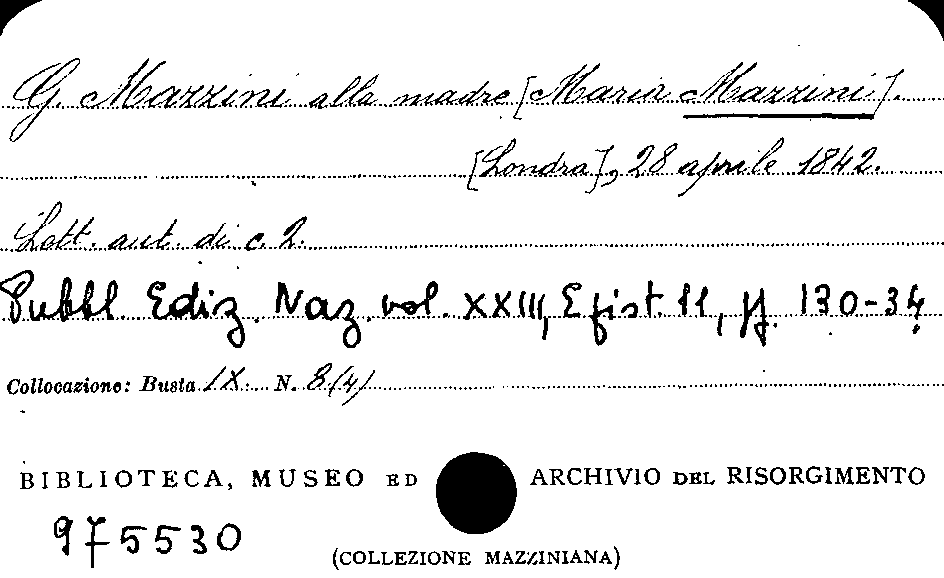 G. Mazzini alla madre [Maria Mazzini].
[Londra], 28 aprile 1842.
Lett. aut. di c. 2.
Pubbl. Ediz. Naz. vol. XXIII, Epist. 11, pp. 130-34
Collocazione: Busta IX. N. 8(4)
BIBLIOTECA, MUSEO ED ARCHIVIO DEL RISORGIMENTO
975530
(COLLEZIONE MAZZINIANA)